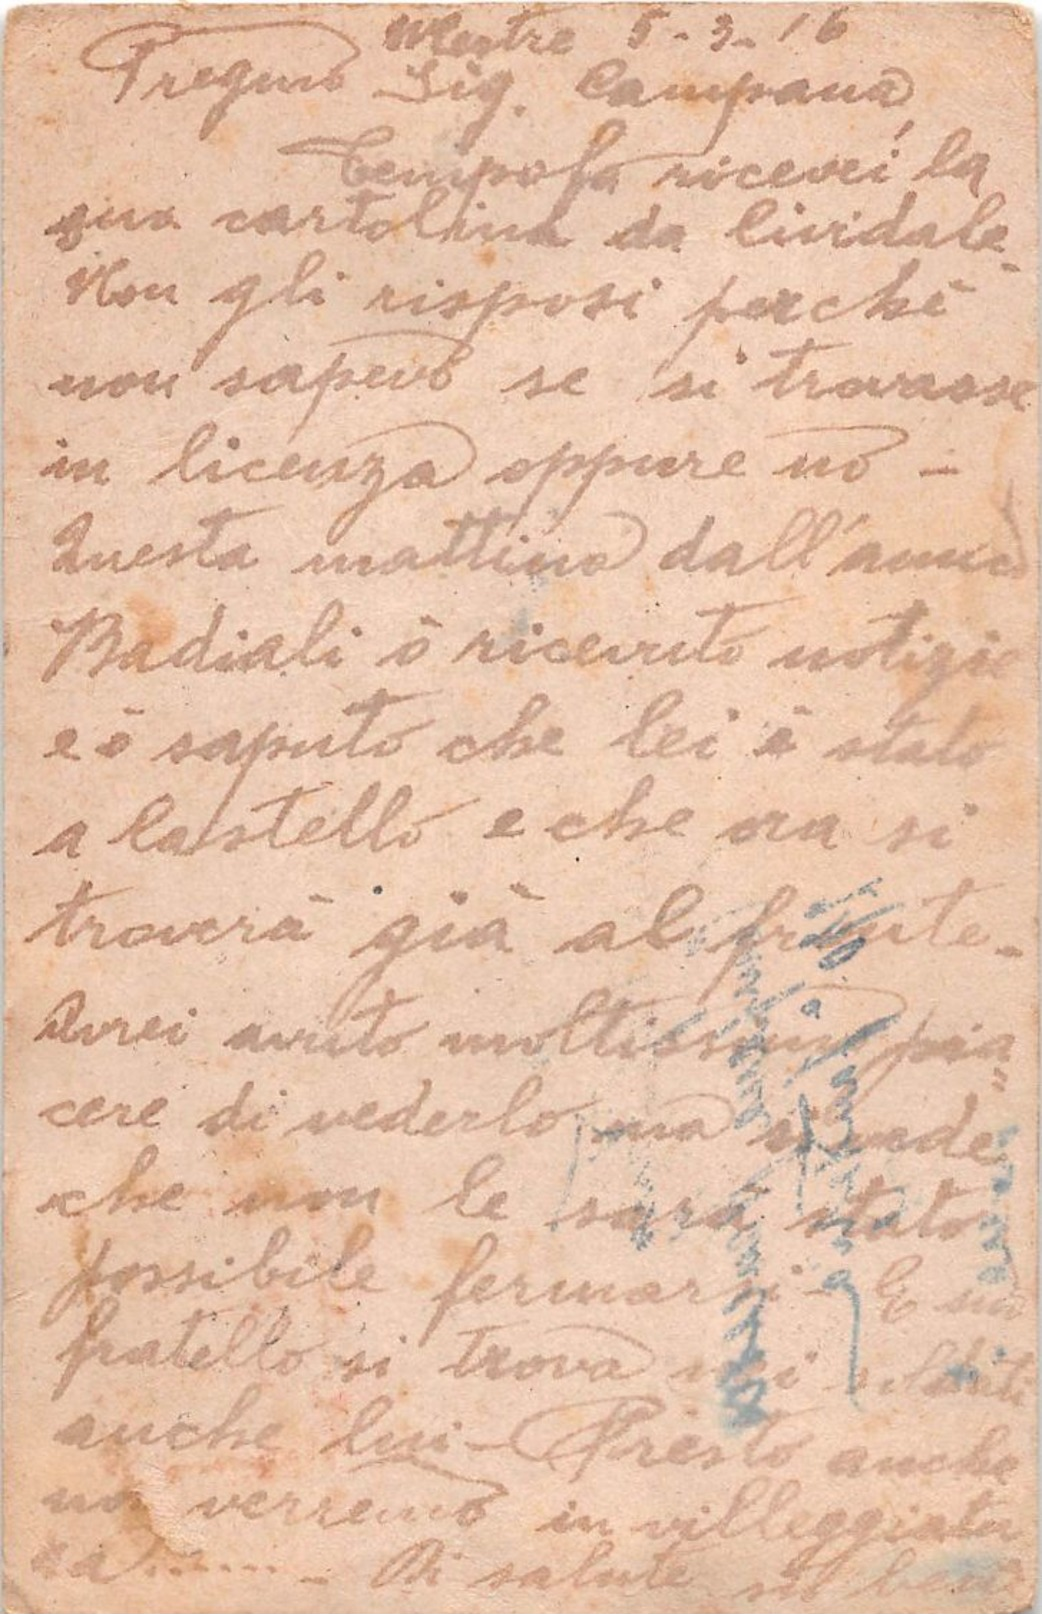 Mestre 5-3-16
Pregmo Sig. Campana,
Tempofa ricevei la
sua cartolina da Cividale-
Non gli risposi perchè
non sapevo se si trovasse
in licenza oppure no -
Questa mattina dall'amico
Badiali ò ricevuto notizie
e ò saputo che lei è stato
a Castello e che ora si
troverà già al fronte-
Avrei avuto moltissimo pia=
cere di vederlo ma si vede
che non le sarà stato
possibile fermarsi - E suo
fratello si trova nei soldati
anche lui - Presto anche
noi verremo in villeggiatu
ra....... - Di salute sto bene